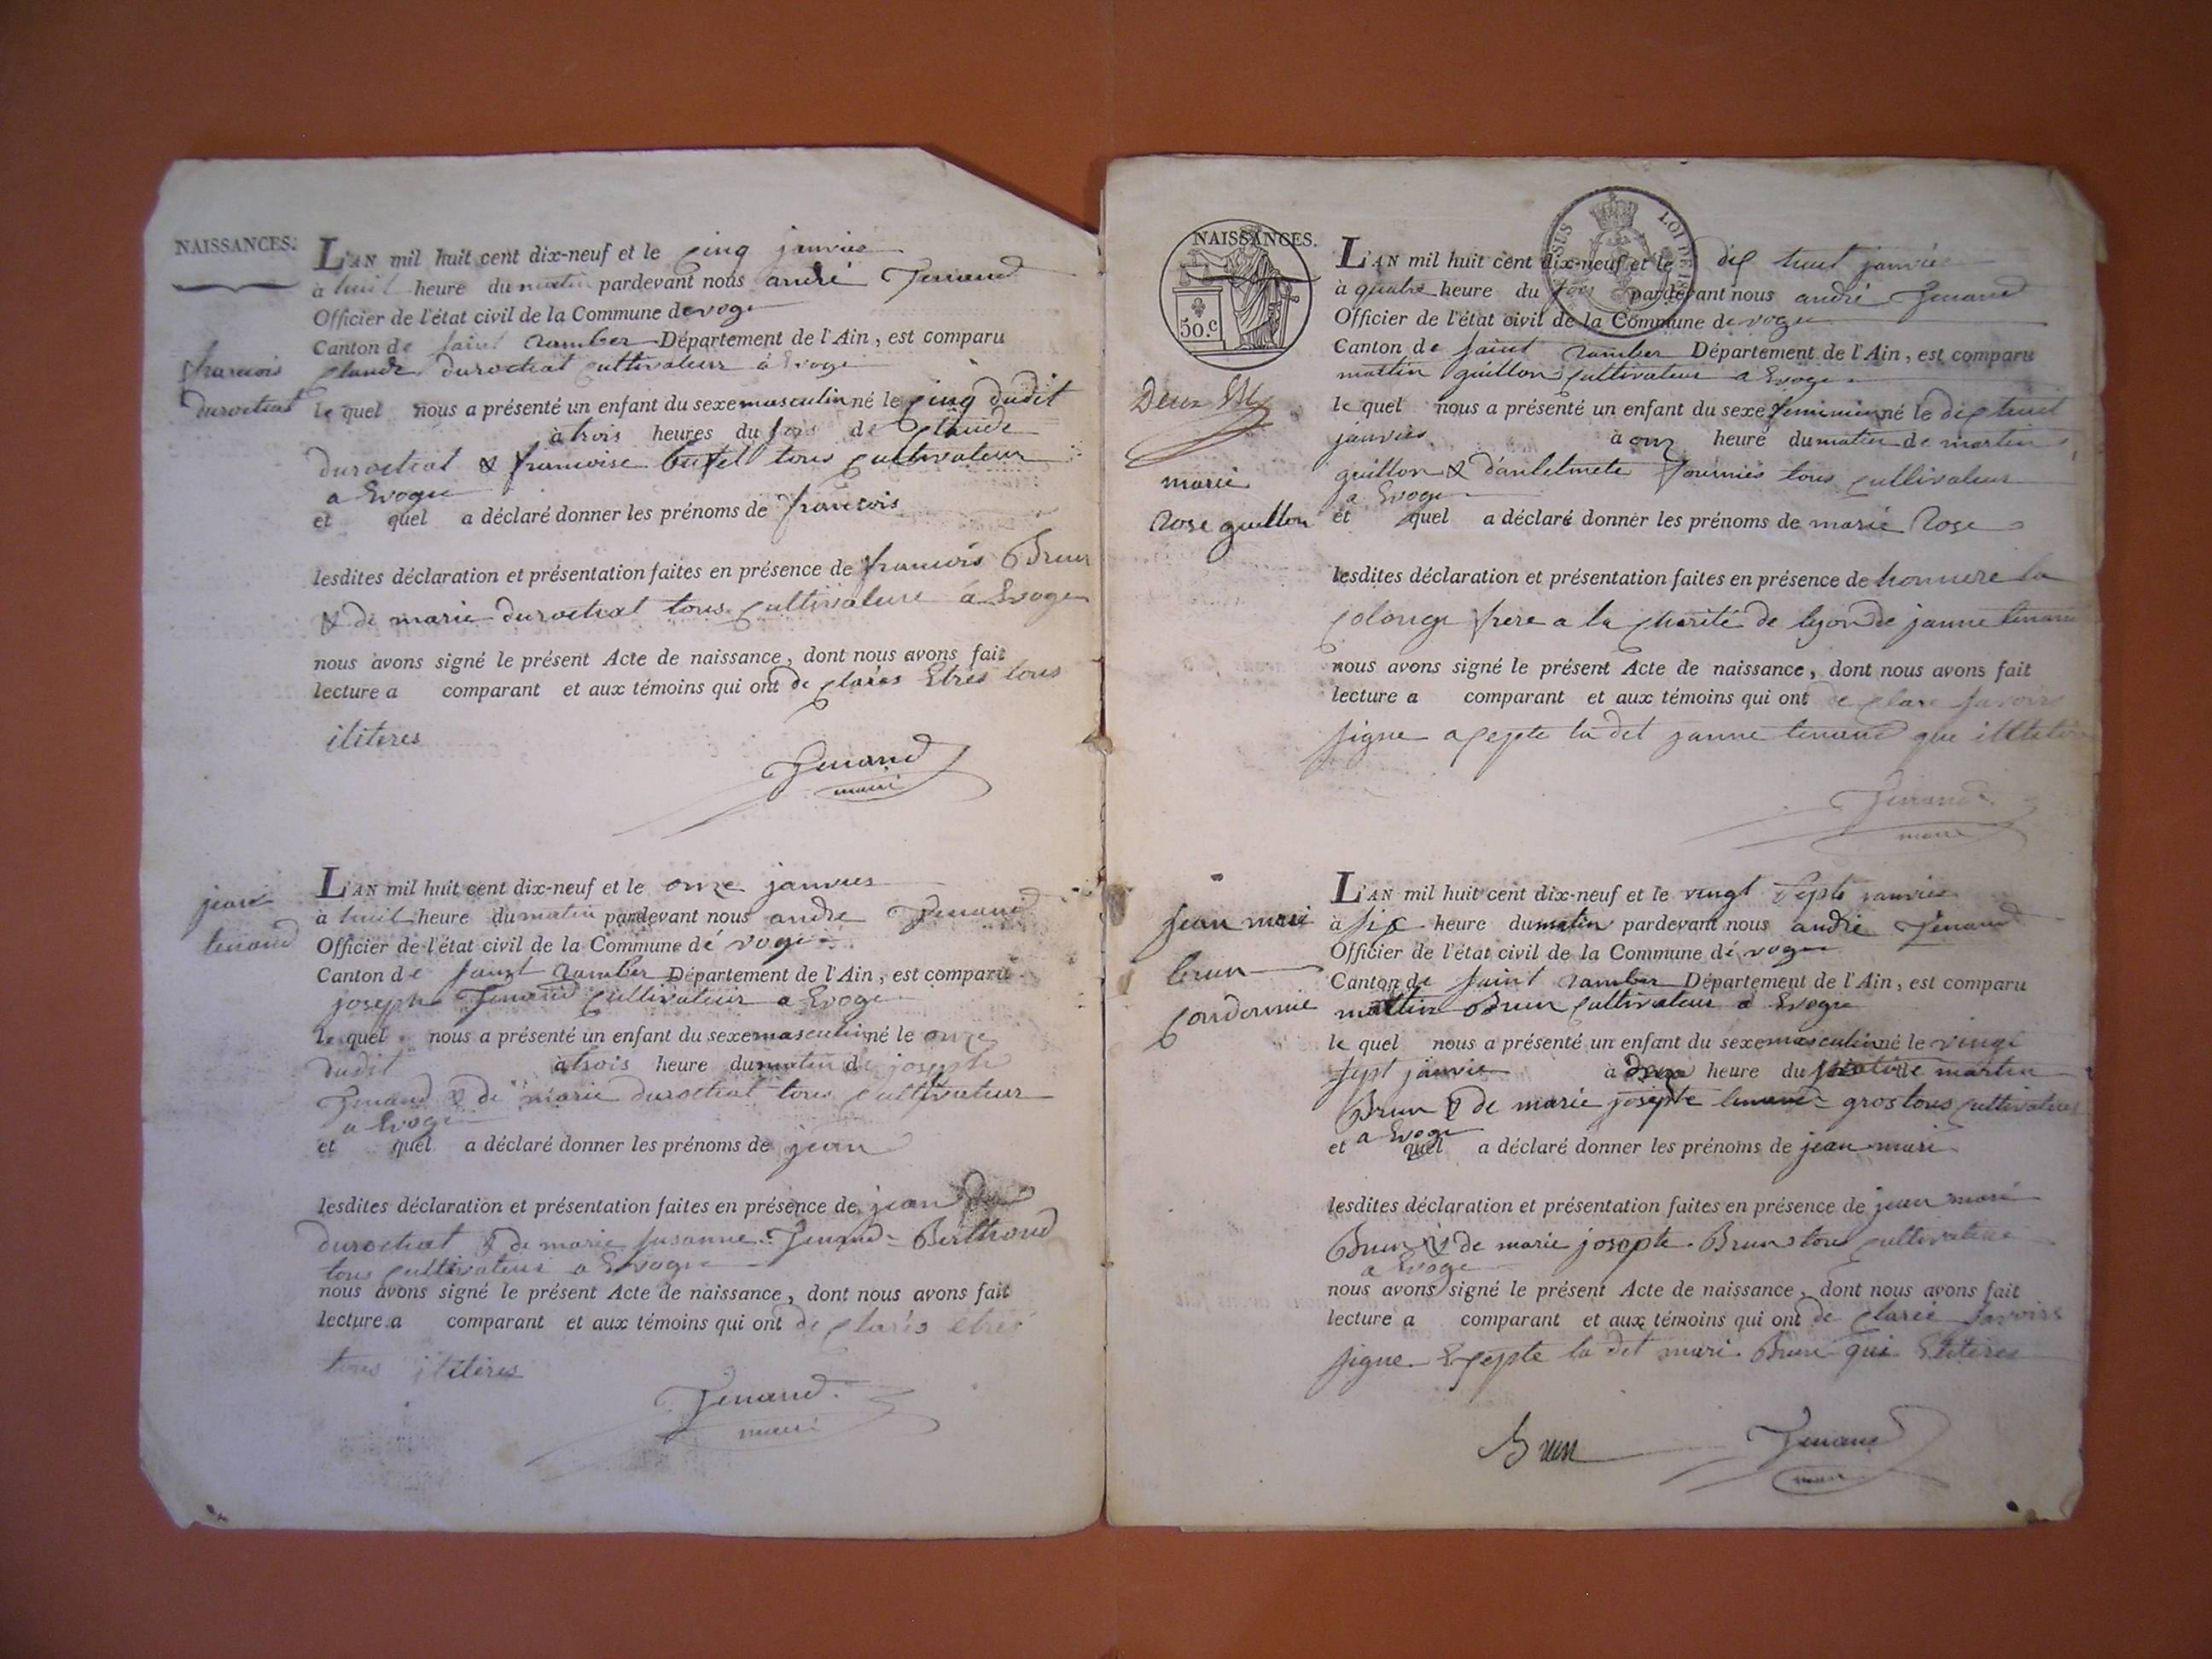 NAISSANCES.
L'AN mil huit cent dix-neuf et le cinq janvier
à huit heure du matin pardevant nous andré Tenand
Officier de l'état civil de la Commune devoge
Canton de saint Ramber Département de l'Ain, est comparu
claude durochat cultivateur a Evoge
francois
durochat
le quel nous a présenté un enfant du sexe masculin né le cinq dudit
à trois heures du soir de claude
durochat & francoise tous cultivateur
a Evoge
et quel a déclaré donner les prénoms de francois
lesdites déclaration et présentation faites en présence de francois Brun
& de marie durochat tous cultivateur a Evoge
nous avons signé le présent Acte de naissance, dont nous avons fait
lecture a comparant et aux témoins qui ont de clarés Etres tous
iliteres
Tenand
maire
jean
tenand
L'AN mil huit cent dix-neuf et le onze janvier
à huit heure du matin pardevant nous andre Tenand
Officier de l'état civil de la Commune dé voge
Canton de saint Ramber Département de l'Ain, est comparu
joseph Tenand cultivateur a Evoge
le quel nous a présenté un enfant du sexe masculin né le onze
dudit à trois heure du matin de joseph
Tenand & de marie durochat tous cultivateur
a Evoge
et quel a déclaré donner les prénoms de jean
lesdites déclaration et présentation faites en présence de jean
durochat & de marie susanne Tenand - Berthoud
tous cultivateur a Evoge
nous avons signé le présent Acte de naissance, dont nous avons fait
lecture a comparant et aux témoins qui ont de clarés etres
tous iliteres
Tenand
maire
NAISSANCES.
50.c
LOI DE
L'AN mil huit cent dix-neuf et le dix huit janvier
à quatre heure du soir pardevant nous andré Tenand
Officier de l'état civil de la Commune de voge
Canton de saint Ramber Département de l'Ain, est comparu
martin guillon cultivateur a Evoge
Deux
marie
Rose guillon
le quel nous a présenté un enfant du sexe feminin né le dix huit
janvier à onz heure du matin de martin
guillon & tous cultivateur
a Evoge
et quel a déclaré donner les prénoms de marie Rose
lesdites déclaration et présentation faites en présence de
colonge frere a la charité de lyon de janne tenand
nous avons signé le présent Acte de naissance, dont nous avons fait
lecture a comparant et aux témoins qui ont de clare savoire
signe a cepte la dit janne tenand que
Tenand
maire
jean mari
brun
condonnie
L'AN mil huit cent dix-neuf et le vingt septe janvier
à six heure du matin pardevant nous andré Tenand
Officier de l'état civil de la Commune dé voge
Canton de saint Ramber Département de l'Ain, est comparu
martin Brun cultivateur a Evoge
le quel nous a présenté un enfant du sexe masculin né le vingt
sept janvier à deux heure du de martin
Brun & de marie josepte tenand - gros tous cultivateur
a Evoge
et quel a déclaré donner les prénoms de jean mari
lesdites déclaration et présentation faites en présence de jean mari
Brun & de marie josepte Brun tous cultivateur
a Evoge
nous avons signé le présent Acte de naissance, dont nous avons fait
lecture a comparant et aux témoins qui ont de clarée savoire
signe Excepte la dit mari Brun qui
Brun
Tenand
maire